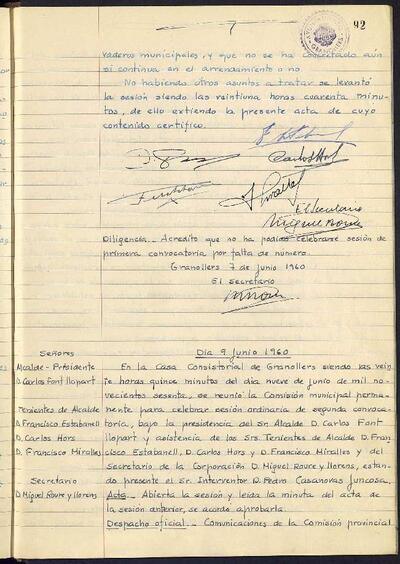 92
vaderos municipales, y que no se ha concertado aún
si continua en el arrendamiento o no.
No habiendo otros asuntos a tratar se levantó
la sesión siendo las veintiuna horas cuarenta minu-
tos, de ello extiendo la presente acta de cuyo
contenido certifico.
Carlos Hors
El Secretario
Miguel Roure
Diligencia.- Acredito que no ha podido celebrarse sesión de
primera convocatoria por falta de numero.
Granollers 7 de junio 1960
El secretario
Señores
Alcalde-Presidente
D. Carlos Font Llopart
Tenientes de Alcalde
D. Francisco Estabanell
D. Carlos Hors
D. Francisco Miralles
Secretario
D. Miguel Roure y Llorens
Dia 9 junio 1960
En la Casa Consistorial de Granollers siendo las vein-
te horas quince minutos del dia nueve de junio de mil no-
vecientos sesenta, se reunió la Comisión municipal perma-
nente para celebrar sesión ordinaria de segunda convoca-
toria, bajo la presidencia del Sr. Alcalde D. Carlos Font
Llopart y asistencia de los Srs. Tenientes de Alcalde D. Fran-
cisco Estabanell, D. Carlos Hors y D. Francisco Miralles y del
Secretario de la Corporación D. Miguel Roure y Llorens, estan-
do presente el Sr. Interventor D. Pedro Casanovas Juncosa.
Acta.- Abierta la sesión y leida la minuta del acta de
la sesión anterior, se acordo aprobarla.
Despacho oficial.- Comunicaciones de la Comisión provincial